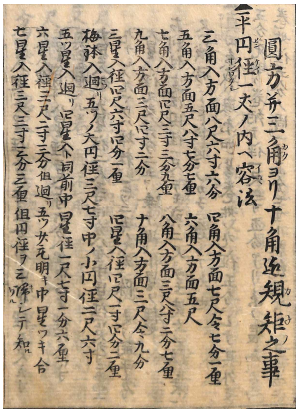 圓方并三角ヨリ十角迄規矩之事
平円径一丈ノ内ヘ容法
三角入方面八尺六寸六分 四角入方面七尺令七分一厘
五角入方面五尺八寸七分七厘 六角入方面五尺
七角入方面四尺三寸三分二厘 八角入方面三尺八寸二分七厘
九角入方面三尺四寸二分 十角入方面三尺令九分
三星入径四尺六寸四分一厘 四星入径四尺一寸四分二厘
梅鉢ノ廻リ五ツノ大円径三尺七寸中ノ小円径二尺六寸
五ツ星入廻リ四星入ト同前中星径一尺七寸一分六厘
六星入径二尺二寸三分但廻リ五ツ 明キ中星ツキ合
七星入径三尺三寸三分三厘但円径ヲ三除シテ知